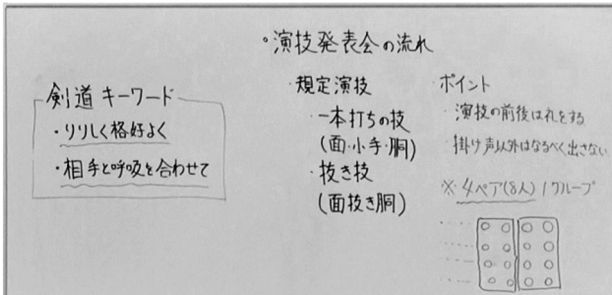 ・演技発表会の流れ
剣道 キーワード
・りりしく格好よく
・相手と呼吸を合わせて
・規定演技
・一本打ちの技
(面・小手・胴)
・抜き技
(面抜き胴)
・ポイント
・演技の前後は礼をする
・掛け声以外はなるべく出さない
※ 4ペア(8人)1グループ